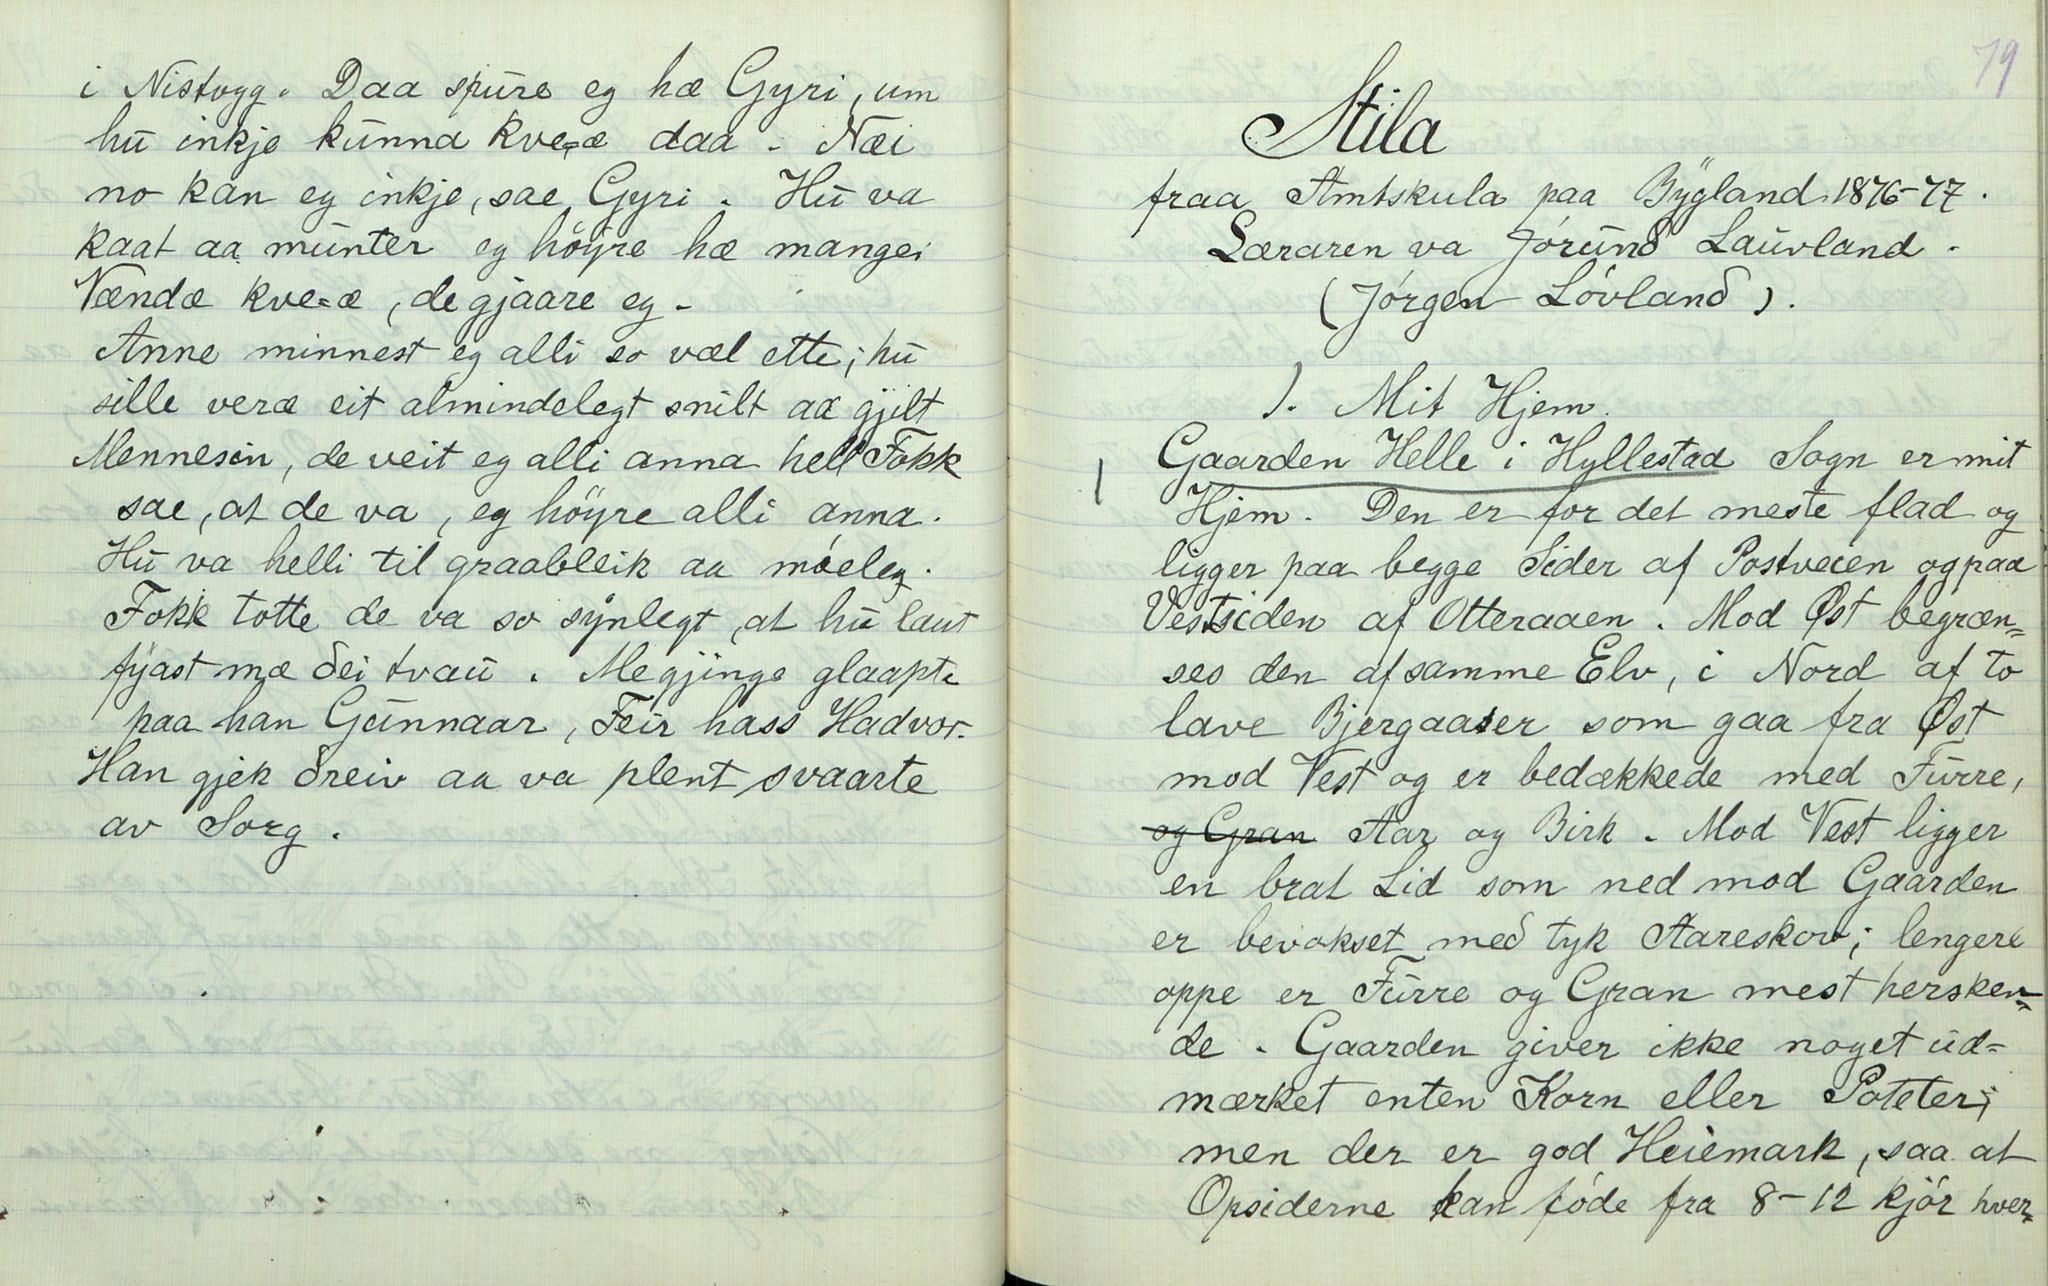 i Nistogg. Daa spure eg hæ Gyri, um
hu inkje kunna kve=æ daa. Næi
no kan eg inkje, sae Gyri. Hu va
kaat aa munter eg höyre hæ mangei
Vændæ kve=æ, de gjaare eg.
Anne minnest eg alli so væl ette; hu
sille veræ eit almindelegt snilt aa gjilt
Mennesin, de veit eg alli anna hell Fokk
sae, at de va, eg höyre alli anna.
Hu va helli til graableik aa móeleg.
Fokk totte de va so synlegt, at hu laut
fyast mæ dei tvau. Me gjinge glaapte
paa han Gunnaar, Feir hass Hadvor.
Han gjek dreiv aa va plent svaarte
av Sorg.
79
Stila
fraa Amtskula paa Bygland 1876-77.
Læraren va Jórund Lauvland.
(Jórgen Lóvland).
1. Mit Hjem.
Gaarden Helle i Hyllestad Sogn er mit
Hjem. Den er for det meste flad og
ligger paa begge Sider af Postveien og paa
Vestsiden af Otteraaen. Mod Øst begræn=
ses den af samme Elv, i Nord af to
lave Bjergaaser som gaa fra Øst
mod Vest og er bedækkede med Furre,
og Gran Aar og Birk. Mod Vest ligger
en brat Lid som ned mod Gaarden
er bevokset med tyk Aareskov; lengere
oppe er Furre og Gran mest hersken=
de. Gaarden giver ikke noget ud=
mærket enten Korn eller Poteter;
men der er god Heiemark, saa at
Opsiderne kan föde fra 8-12 kjór hver=